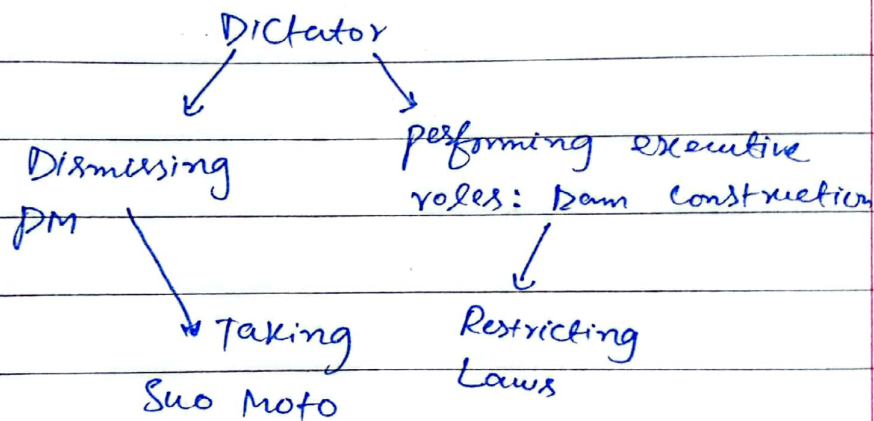 Dictator
Dismissing
PM
performing executive
roles: Dam construction
Taking
Suo Moto
Restricting
Laws